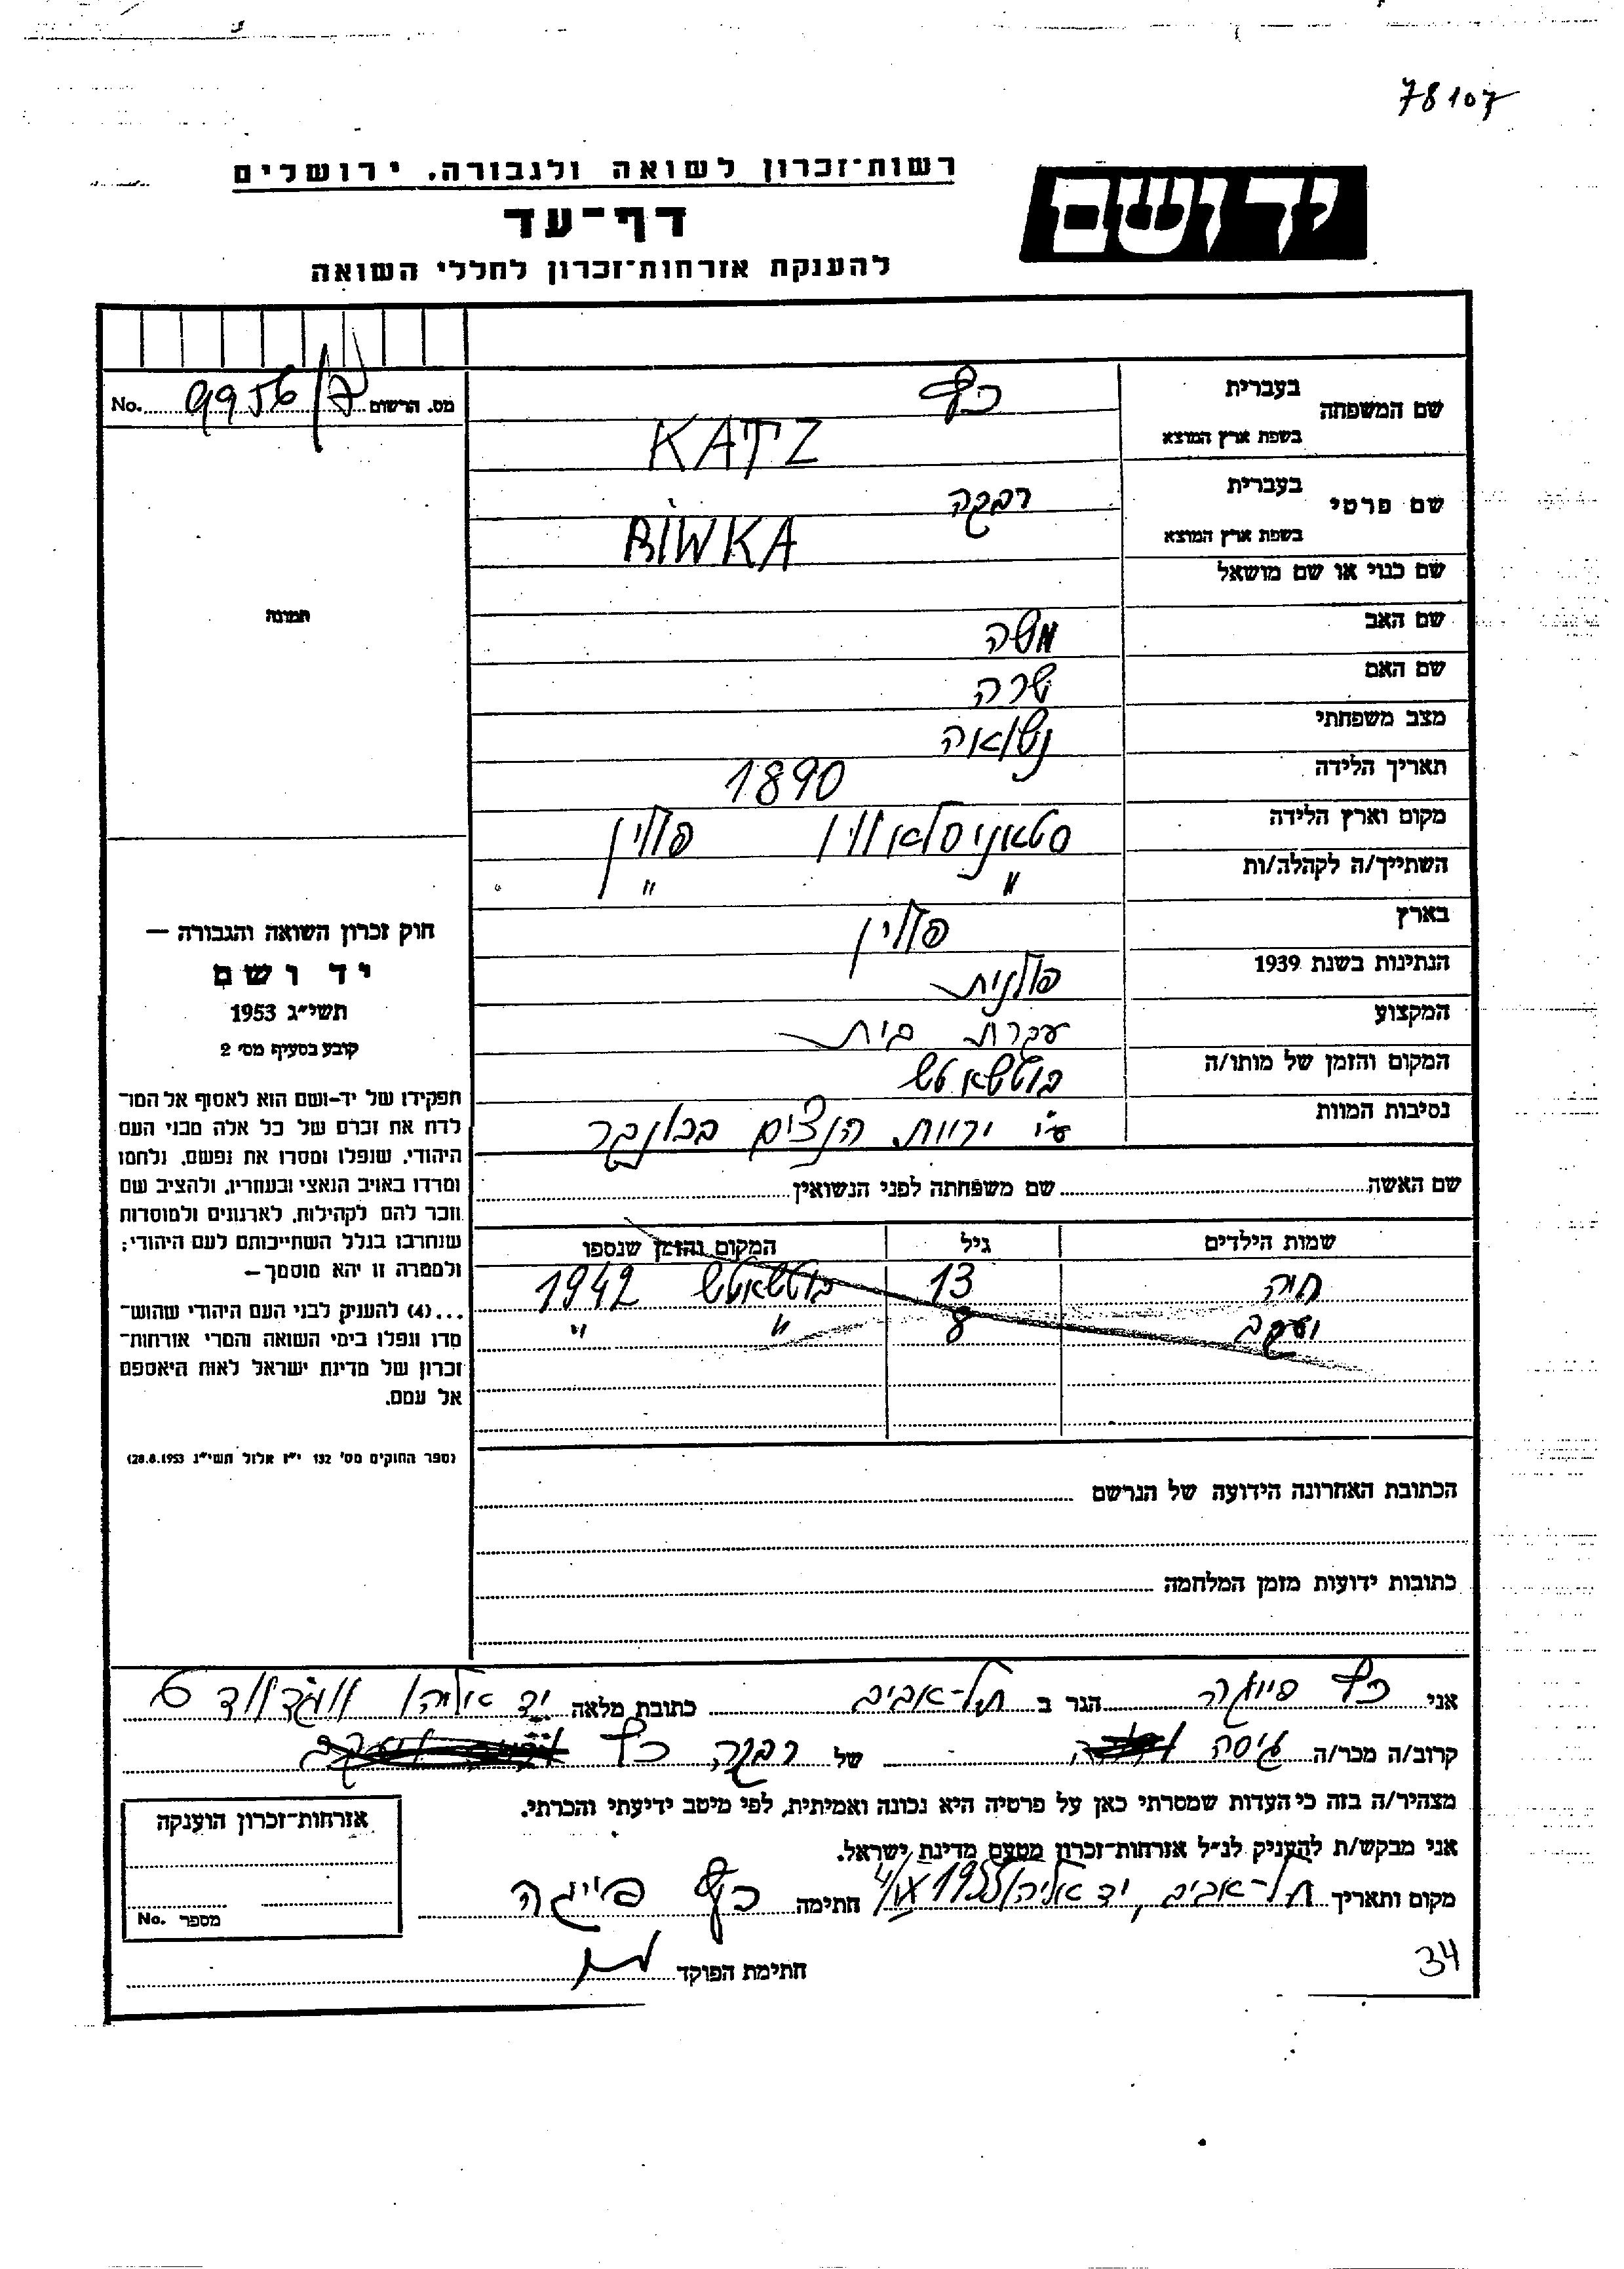 78107
יד ושם
רשות-זכרון לשואה ולגבורה, ירושלים
דף-עד
להענקת אזרחות-זכרון לחללי השואה
שם המשפחה בעברית כץ
בשפת ארץ המוצא KATZ
מס. הרשום 9956/7 No.
שם פרטי בעברית רבקה
בשפת ארץ המוצא RIWKA
שם כנוי או שם מושאל
תמונה
שם האב משה
שם האם שרה
מצב משפחתי נשואה
תאריך הלידה 1890
מקום וארץ הלידה סטאניסלאוון פולין
השתייך/ה לקהלה/ות " "
בארץ פולין
הנתינות בשנת 1939 פולנית
המקצוע עקרת בית
המקום והזמן של מותו/ה בוטשאטש
נסיבות המוות ע"י יריות הנצים בבונקר
שם האשה שם משפחתה לפני הנשואין
שמות הילדים גיל המקום והזמן שנספו
חיה 13 בוטשאטש 1942
יעקב 8 " "
חוק זכרון השואה והגבורה —
יד ושם
תשי"ג 1953
קובע בסעיף מס' 2
תפקידו של יד-ושם הוא לאסוף אל המו־
לדת את זכרם של כל אלה מבני העם
היהודי, שנפלו ומסרו את נפשם, נלחמו
ומרדו באויב הנאצי ובעוזריו, ולהציב שם
וזכר להם לקהילות, לארגונים ולמוסדות
שנחרבו בגלל השתייכותם לעם היהודי;
ולמטרה זו יהא מוסמך—
...(4) להעניק לבני העם היהודי שהוש־
מדו ונפלו בימי השואה והמרי אזרחות־
זכרון של מדינת ישראל לאות היאספם
אל עמם.
(ספר החוקים מס' 132 י"ז אלול תשי"ג 28.8.1953)
הכתובת האחרונה הידועה של הנרשם
כתובות ידועות מזמן המלחמה
אני כץ פייגה הגר ב תל-אביב כתובת מלאה יד אליהו 6
קרוב/ה מכר/ה גיסה של רבקה כץ
מצהיר/ה בזה כי העדות שמסרתי כאן על פרטיה היא נכונה ואמיתית, לפי מיטב ידיעתי והכרתי.
אני מבקש/ת להעניק לנ"ל אזרחות-זכרון מטעם מדינת ישראל.
מקום ותאריך תל-אביב, יד אליהו חתימה כץ פייגה
חתימת הפוקד
אזרחות-זכרון הוענקה
מספר No.
34